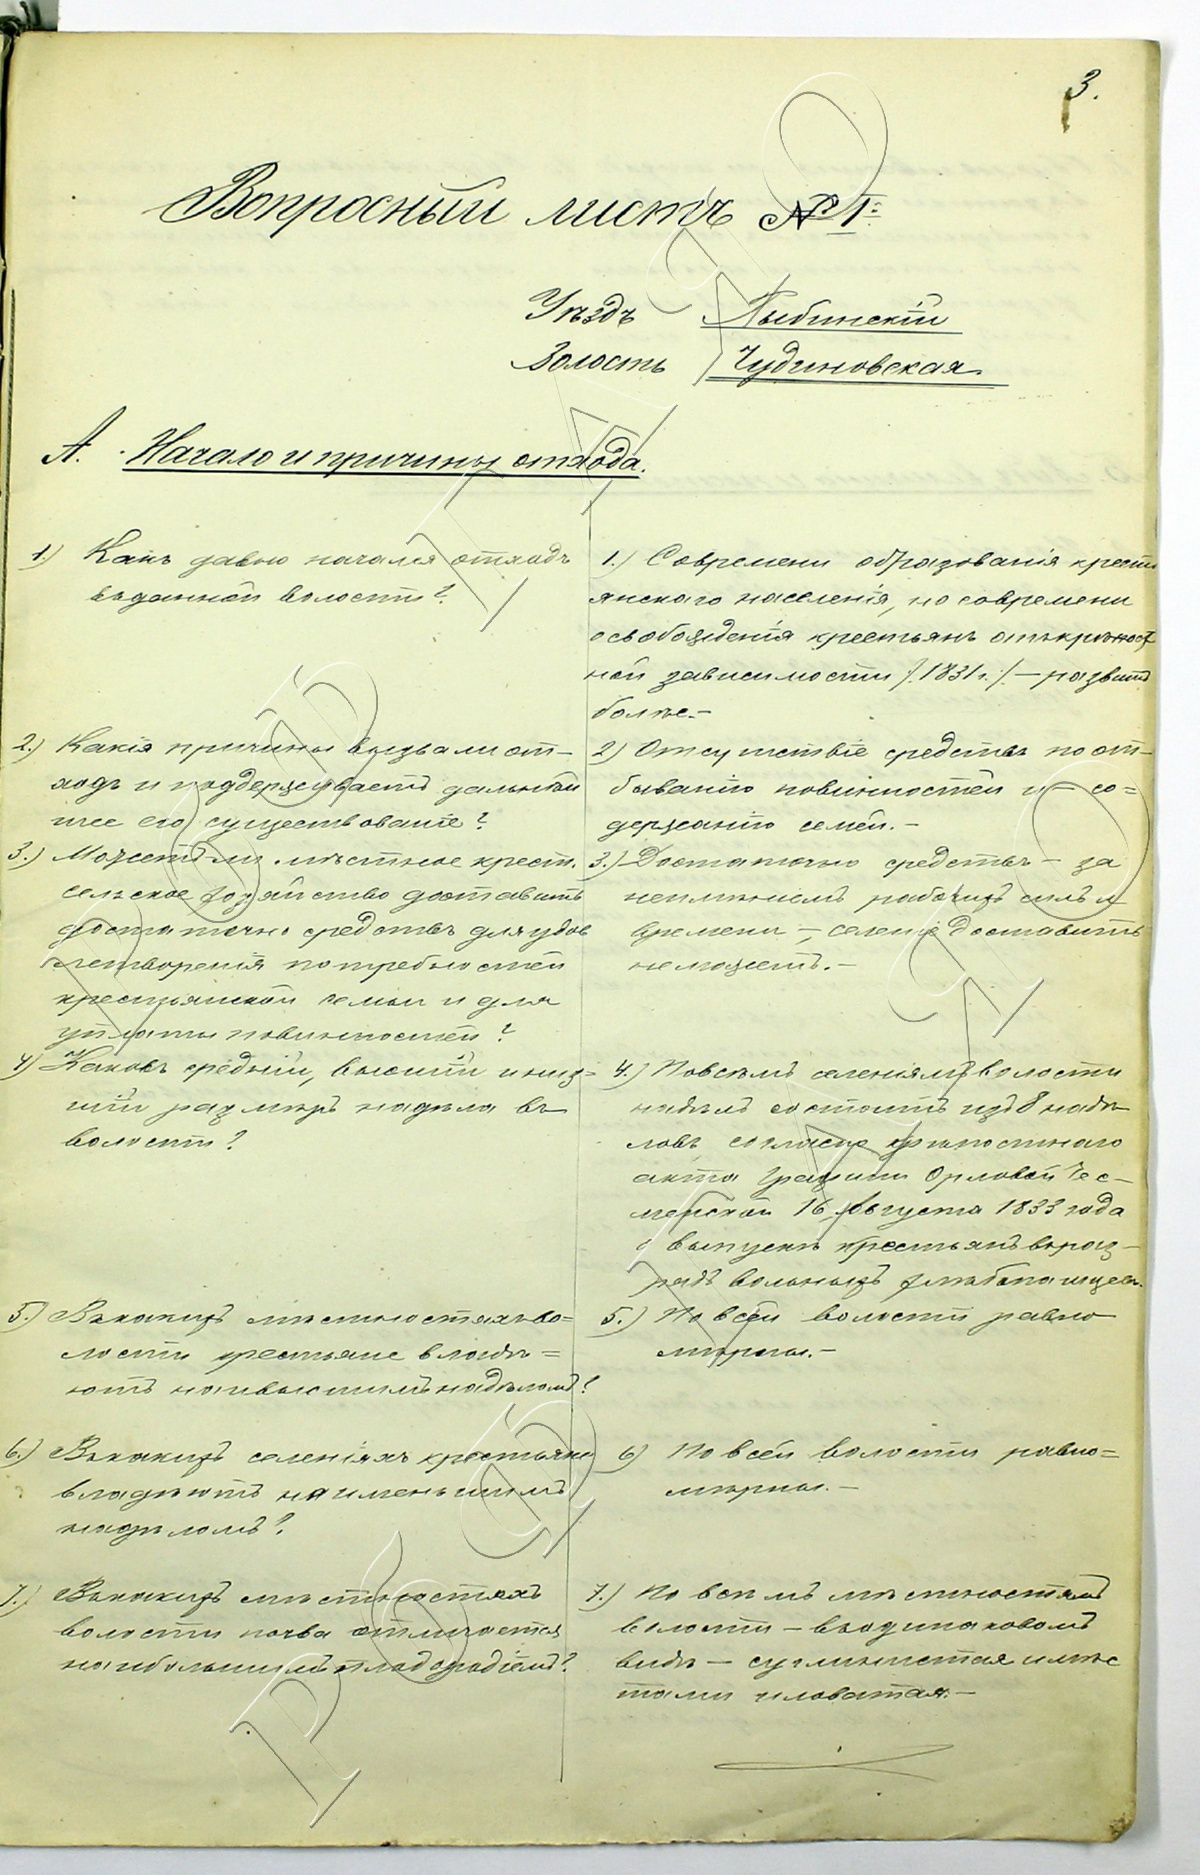 3.
Вопросный листъ № 1.
Уѣздъ Рыбинскій
Волость Чудиновская
А. Начало и причины отхода.
1.) Какъ давно начался отходъ
въ данной волости?
1.) Современи образованія кресть
янскаго населенія, но современи
освобожденія крестьянъ отъ крѣпост
ной зависимости /.1831 г./ — развит
болѣе.—
2.) Какія причины вызвали от-
ходъ и поддерживаетъ дальнѣй
шее его существованіе?
2) Отсутствіе средствъ по от-
быванію повинностей и — со=
держанію семей.—
3.) Можетъ ли мѣстное крест.
сельское хозяйство доставить
достаточно средствъ для удов
летворенія потребностей
крестьянской семьи и для
уплаты повинностей?
3.) Достаточно средствъ — за
неимѣніемъ рабочихъ силъ и
времени —, селеніе доставить
не можетъ.—
4) Каковъ средній, высшій и низ=
шій размѣръ надѣла въ
волости?
4.) По всѣмъ селеніямъ волости
надѣлъ состоитъ изъ 8 надѣ
ловъ согласно крѣпостнаго
акта Графини Орловой Чес-
менской 16 Августа 1833 года
о выпускѣ крестьянъ въ раз-
рядъ вольныхъ хлѣбопашцевъ.
5.) Въ какихъ мѣстностяхъ во=
лости крестьяне владѣ=
ютъ наивысшимъ надѣломъ?
5.) По всей волости равно
мѣрны.—
6.) Въ какихъ селеніяхъ крестьяне
владѣютъ наименьшимъ
надѣломъ?
6) По всей волости равно=
мѣрны.—
7.) Въ какихъ мѣстностяхъ
волости почва отличается
наибольшимъ плодородіемъ?
7.) По всѣмъ мѣстностямъ
волости — въ одинаковомъ
видѣ — суглинистая и мѣс
тами иловатая.—